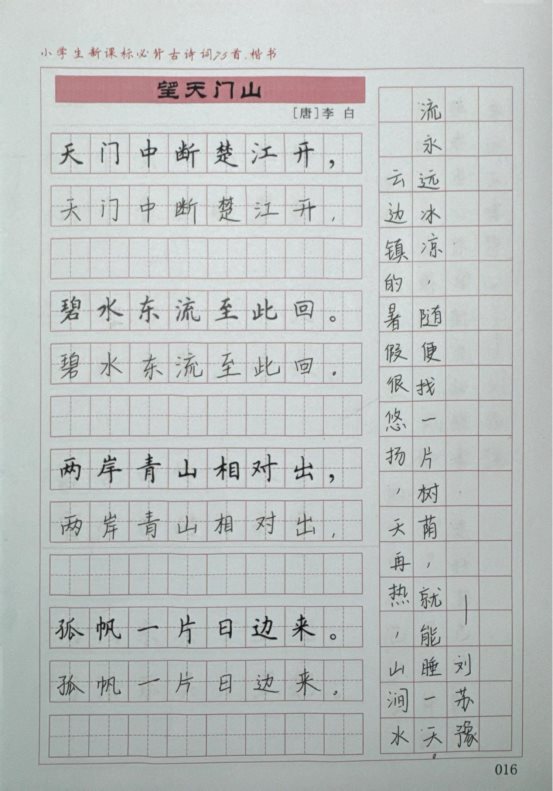 小学生新课标必背古诗词75首·楷书
望天门山
[唐]李 白
天门中断楚江开，
天门中断楚江开，
碧水东流至此回。
碧水东流至此回。
两岸青山相对出，
两岸青山相对出，
孤帆一片日边来。
孤帆一片日边来。
云边镇的暑假很悠扬，天再热，山涧水
流永远冰凉，随便找一片树荫，就能睡一天。
—刘苏豫
016